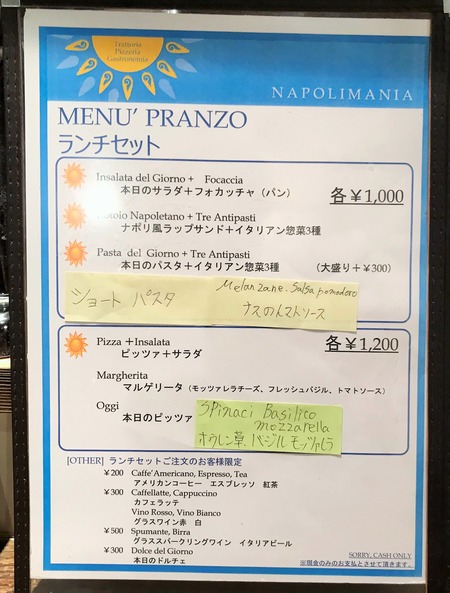 Trattoria
Pizzeria
Gastronomia
NAPOLIMANIA
MENU' PRANZO
ランチセット
Insalata del Giorno + Focaccia
本日のサラダ+フォカッチャ（パン）
各￥1,000
Napoletano + Tre Antipasti
ナポリ風ラップサンド+イタリアン惣菜3種
Pasta del Giorno + Tre Antipasti
本日のパスタ+イタリアン惣菜3種 （大盛り+￥300）
ショート パスタ
Melanzane. Salsa pomodoro
ナスのトマトソース
Pizza +Insalata
ピッツァ+サラダ
各￥1,200
Margherita
マルゲリータ（モッツァレラチーズ、フレッシュバジル、トマトソース）
Oggi
本日のピッツァ
SPinaci Basilico
mozzarella
ホウレン草 バジル モッツァレラ
[OTHER] ランチセットご注文のお客様限定
￥200 Caffe'Americano, Espresso, Tea
アメリカンコーヒー エスプレッソ 紅茶
￥300 Caffellatte, Cappuccino
カフェラッテ
Vino Rosso, Vino Bianco
グラスワイン赤 白
￥500 Spumante, Birra
グラススパークリングワイン イタリアビール
￥300 Dolce del Giorno
本日のドルチェ
SORRY, CASH ONLY
※現金のみのお支払とさせて頂きます。